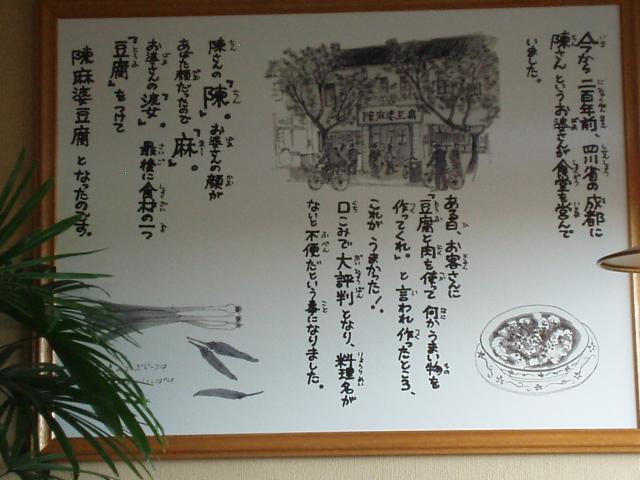 今から二百年前、四川省の成都に
陳さんというお婆さんが食堂を営んで
いました。
ある日、お客さんに
「豆腐と肉を使って何かうまい物を
作ってくれ。」と言われ作ったところ、
これがうまかった!!
口こみで大評判となり、料理名が
ないと不便だという事になりました。
陳さんの『陳』。お婆さんの顔が
あばた顔だったので『麻』。
お婆さんの『婆』。最後に食材の一つ
『豆腐』をつけて
陳麻婆豆腐となったのです。
陳麻婆豆腐